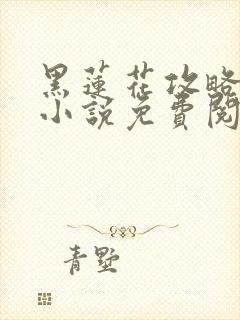 黑蓮花攻略
小說免費閱
青墅